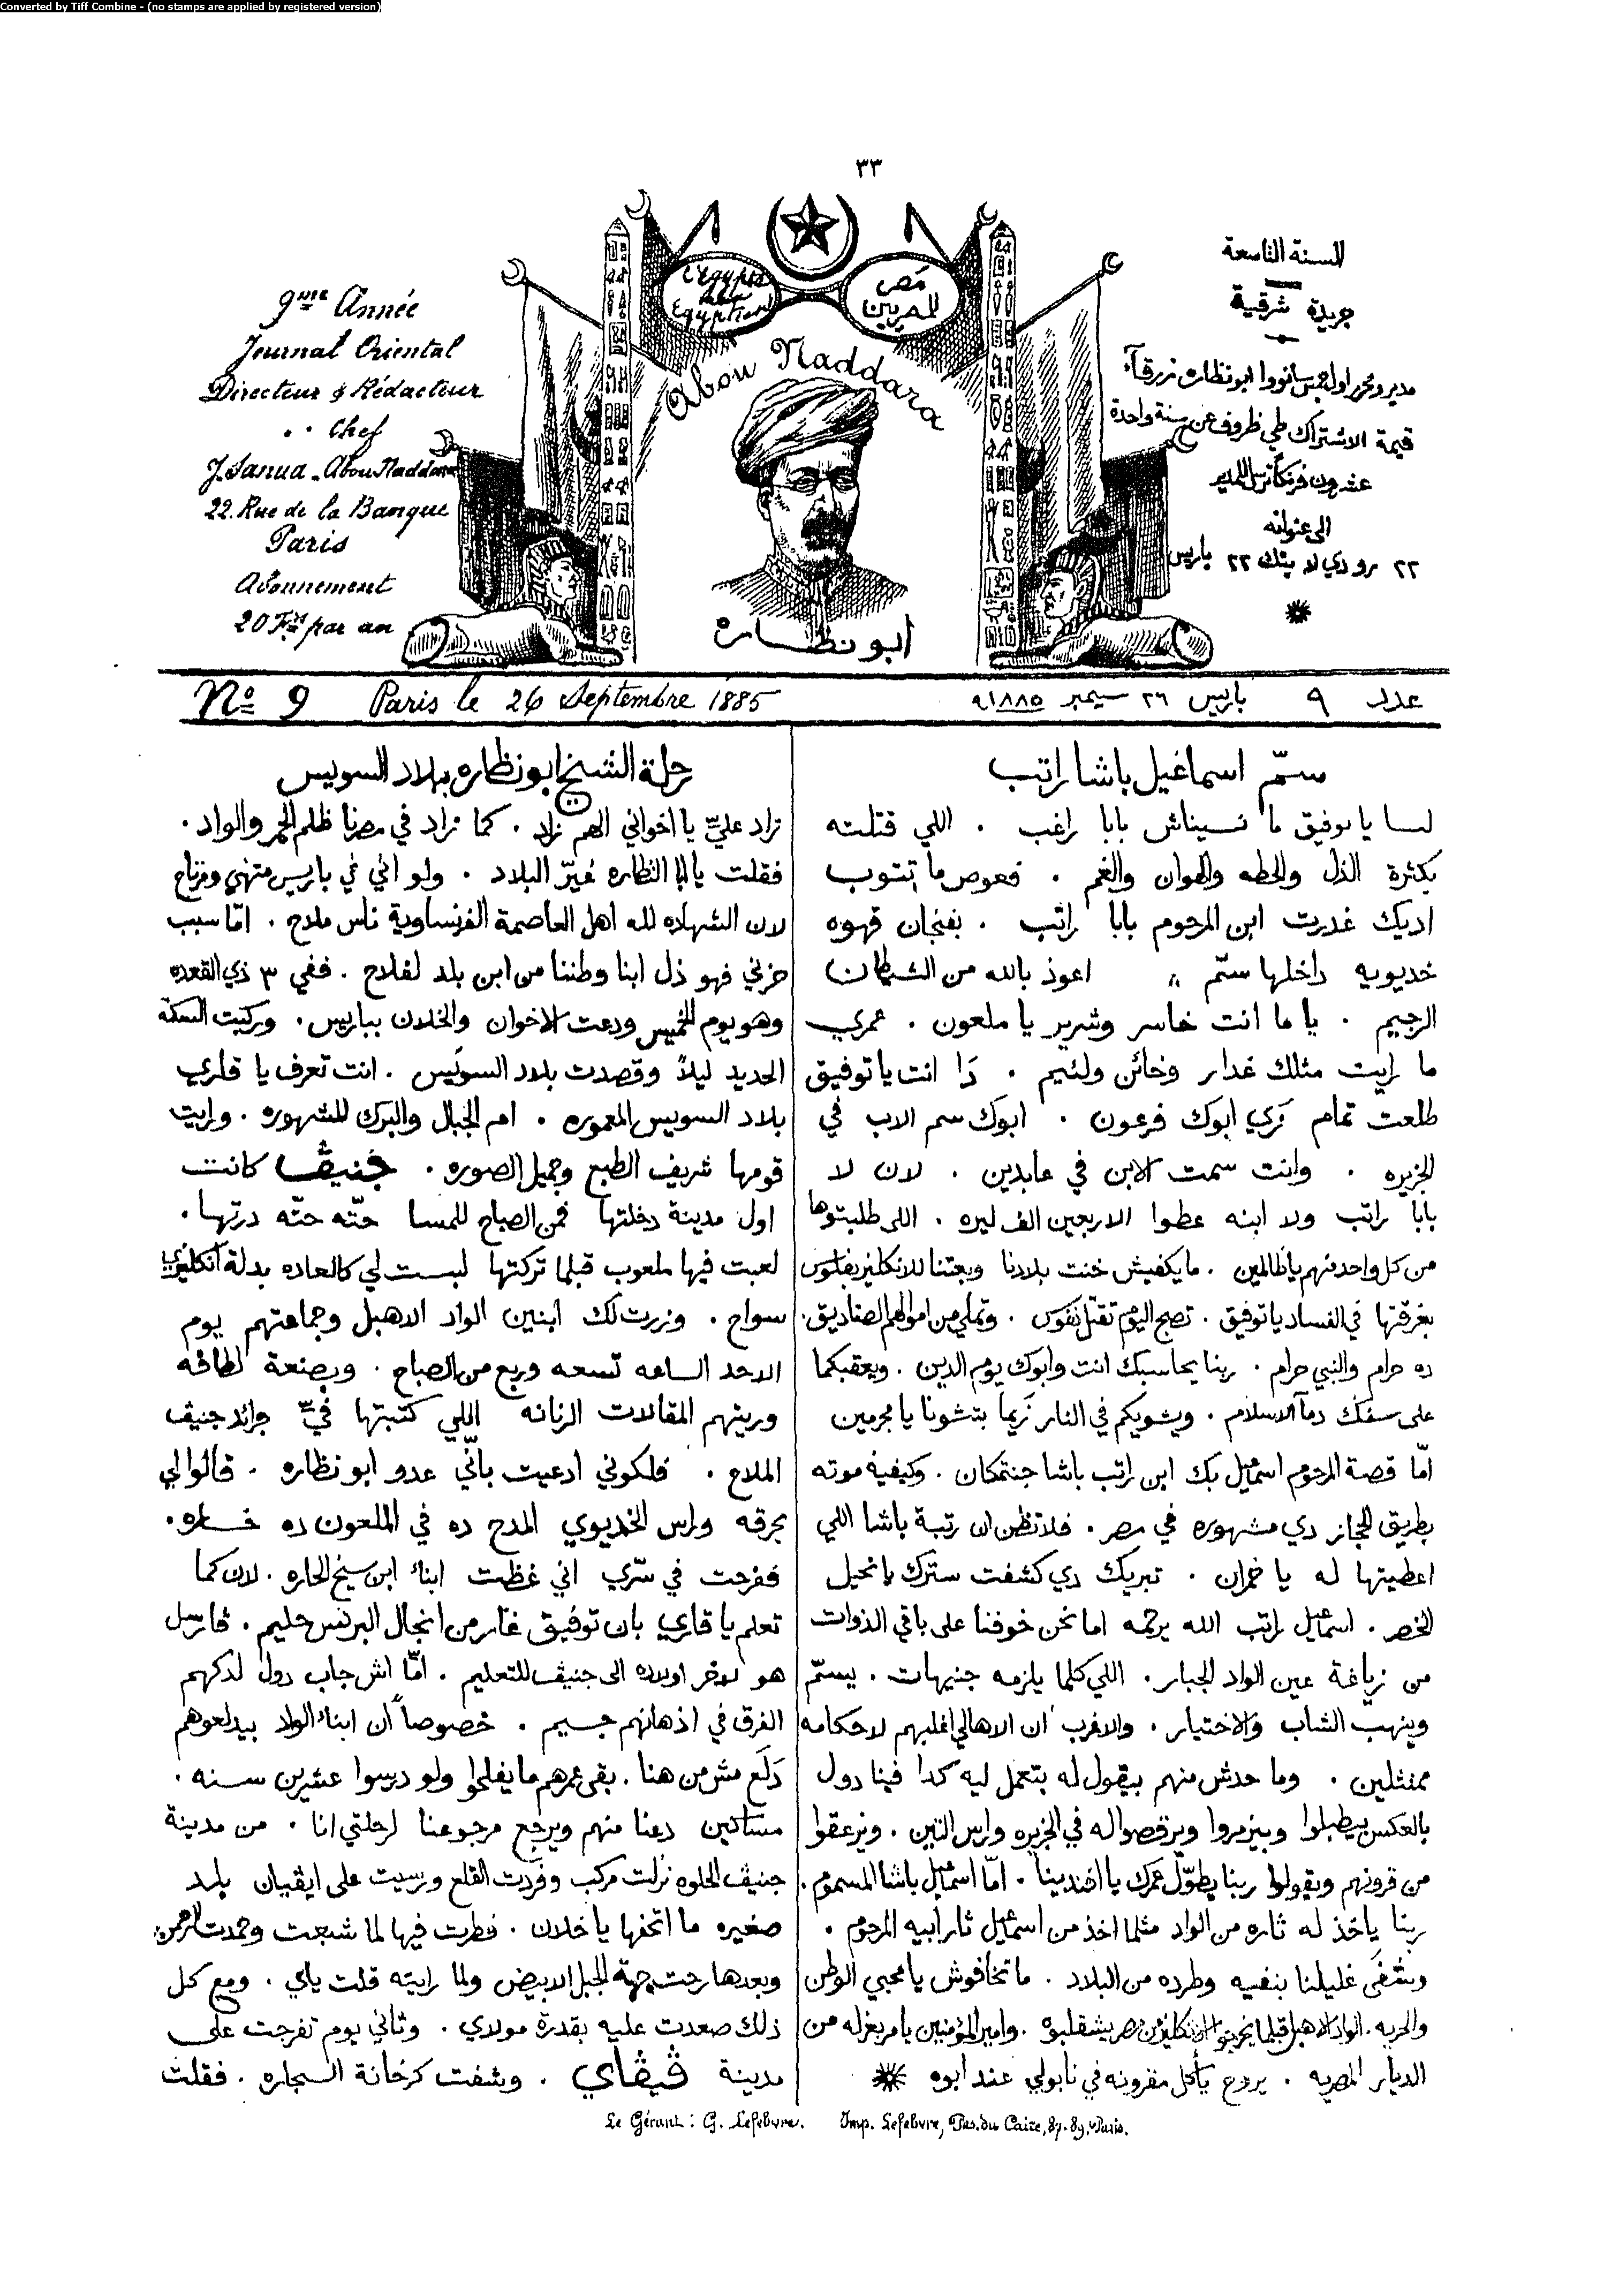 Converted by Tiff Combine - (no stamps are applied by registered version)
٣٣
السنة التاسعة
جريدة شرقية
مدير ومحرر اول جمس سانووا ابو نظاره زرقآء
قيمة الاشتراك طي ظروف عن سنة واحدة
عشرون فرنكاً ترسل للمدير
الى عنوانه
٢٢ رو دي لا بنك ٢٢ باريس
مصر
للمصريين
L'Egypte
aux
Egyptiens
Abou Naddara
ابو نظاره
9me Année
Journal Oriental
Directeur & Rédacteur
Chef
J. Sanua - Abou Naddara
22. Rue de la Banque
Paris
Abonnement
20 Frs par an
عدد ٩ باريس ٢٦ سبتمبر ١٨٨٥
No 9 Paris le 26 Septembre 1885
سمّ اسماعيل باشا راتب
لسا يا توفيق ما نسيناش بابا راغب . اللي قتلته
بكثرة الذل والحطه والهوان والغم . فعوص ما تتوب
اديك غدرت ابن المرحوم بابا راتب . بفنجان قهوه
خديويه داخلها سمّ " اعوذ بالله من الشيطان
الرجيم . يا ما انت خاسر وشرير يا ملعون . عمري
ما رايت مثلك غدار وخائن ولئيم . دَا انت يا توفيق
طلعت تمام زي ابوك فرعون . ابوك سم الاب في
الجزيره . وانت سمت الابن في عابدين . لان لا
بابا راتب ولا ابنه عطوا الاربعين الف ليره . اللي طلبتوها
من كل واحد منهم يا ظالمين . ما يكفيش خنت بلادنا وبعتنا للانكليز بفلوس
بغرقتها في الفساد يا توفيق . تصبح اليوم تقتل نفوس . وتملي من اموالهم الصناديق .
ده حرام والنبي حرام . ربنا يحاسبك انت وابوك يوم الدين . ويعقبكما
على سفك دمآ الاسلام . ويشويكم في النار زيما بتشونا يا مجرمين
امّا قصة المرحوم اسمعيل بك ابن راتب باشا جنتمكان . وكيفية موته
بطريق الحجاز دي مشهوره في مصر . فلا تظن ان رتبة باشا اللي
اعطيتها له يا خران . تبريك دي كشفت سترك يا نحيل
الخصر . اسمعيل راتب الله يرحمه اما نحن خوفنا على باقي الذوات
من زياغة عين الواد الجبار . اللي كلما يلزمه جنيهات . يسمّ
وينهب الشاب والاختيار . والاغرب ان الاهالي اغلبهم لاحكامه
ممتثلين . وما حدش منهم بيقول له بتعمل ليه كدا فينا دول
بالعكس بيطبلوا وبيزمروا ويرقصوا له في الجزيره وراس التين . ويزعقوا
من قرونهم ويقولوا ربنا يطوّل عمرك يا افندينا . امّا اسمعيل باشا المسموم .
ربنا ياخذ له ثاره من الواد مثلما اخذ من اسمعيل ثار ابيه المرحوم .
ويشفى غليلنا بنفيه وطرده من البلاد . ما تخافوش يا محبي الوطن
والحريه . الواد الاهبل قبلما يخرجوا الانكليز من مصر يشقلبوه . وامير المؤمنين يامر بعزله من
الديار المصريه . يروح ياكل مقرونه في نابولي عند ابوه
رحلة الشيخ ابو نظاره ببلاد السويس
زاد عليّ يا اخواني الهم زاد . كما زاد في مصرنا ظلم الحمر والواد .
فقلت يا ابا النظاره غيّر البلاد . ولو اني في باريس متهني ومرتاح
لان الشهاده لله اهل العاصمة الفرنساوية ناس ملاح . امّا سبب
حزني فهو ذل ابنا وطننا من ابن بلد لفلاح . ففي ٣ ذي القعده
وهو يوم الخميس ودعت الاخوان والخلان بباريس . وركبت السكة
الحديد ليلاً وقصدت بلاد السويَس . انت تعرف يا قاري
بلاد السويس المعموره . ام الجبال والبرك المشهوره . ورايت
قومها شريف الطبع وجميل الصوره . جنيڤ كانت
اول مدينة دخلتها فمن الصباح للمسا حتّه حتّه درتها .
لعبت فيها ملعوب قبلما تركتها لبست لي كالعاده بدلة انكليزي
سواح . وزرت لك ابنين الواد الاهبل وجماعتهم يوم
الاحد الساعه تسعه وربع من الصباح . وبصنعة لطافه
وريتهم المقالات الرنانه اللي كتبتها فيّ جرائد جنيڤ
الملاح . فلكوني ادعيت بانّي عدو ابو نظاره . قالوا لي
بحرقه وراس الخديوي المدح ده في الملعون ده خساره .
ففرحت في سرّي اني غظت ابناء ابن سيخ الحاره . لان كما
تعلم يا قاري بان توفيق غار من انجال البرنس حليم . فارسل
هو لاخر اولاده الى جنيڤ للتعليم . امّا اش جاب دول لدكهم
الفرق في اذهانهم جسيم . خصوصاً ان ابناء الواد بيدلعوهم
دَلَع مش من هنا . بقى عمرهم ما يفلحوا ولو درسوا عشرين سنه .
مساكين دعنا منهم ويرجع مرجوعنا لرحلتي انا . من مدينة
جنيڤ الحلوه نزلت مركب وفردت القلع ورسيت على ايڤيان بلد
صغيره ما اتحفها يا خلان . فطرت فيها لما شبعت وحمدت الرحمن
وبعدها رحت جهة الجبل الابيض ولما رايته قلت ياي . ومع كل
ذلك صعدت عليه بقدرة مولاي . وثاني يوم تفرجت على
مدينة ڤيڤاي . وشفت كرخانة السجاره . فقلت
Le Gérant : G. Lefebvre. Imp. Lefebvre, Pas. du Caire, 87-89, Paris.